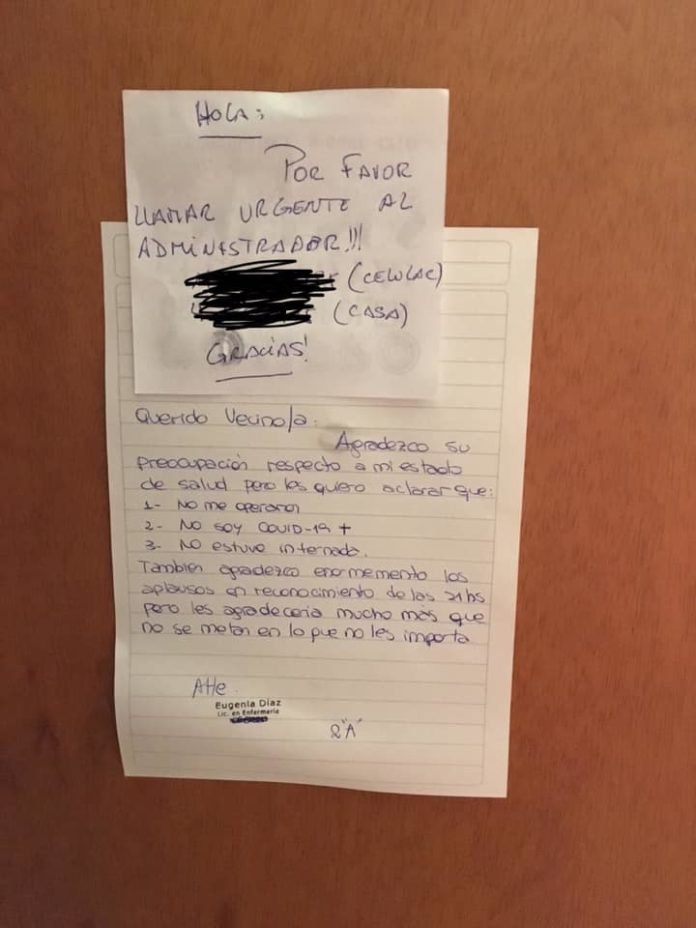 HOLA:
POR FAVOR
LLAMAR URGENTE AL
ADMINISTRADOR!!!
(CELULAR)
(CASA)
GRACIAS!
Querido Vecino/a:
Agradezco su
preocupación respecto a mi estado
de salud pero les quiero aclarar que:
1- No me operaron
2- No soy COVID-19 +
3- No estuve internada.
También agradezco enormemento los
aplausos en reconocimiento de las 21hs
pero les agradecería mucho más que
no se metan en lo que no les importa
Atte.
Eugenia Díaz
Lic. en Enfermería
2"A"